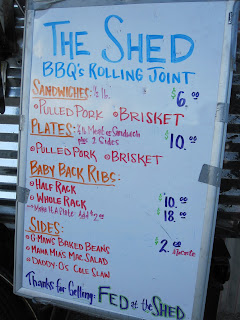 THE SHED
BBQ's ROLLING JOINT
SANDWICHES: ½ lb. $6.00
PULLED PORK BRISKET
PLATES: ½ lb Meat or Sandwich plus 2 Sides $10.00
PULLED PORK BRISKET
BABY BACK RIBS:
HALF RACK $10.00
WHOLE RACK $18.00
Make it A Plate Add $2.00
SIDES: $2.00 A favorite
G-MAW'S BAKED BEANS
MAMA MIA'S MAC. SALAD
DADDY-O'S COLE SLAW
Thanks for Getting: FED at the SHED